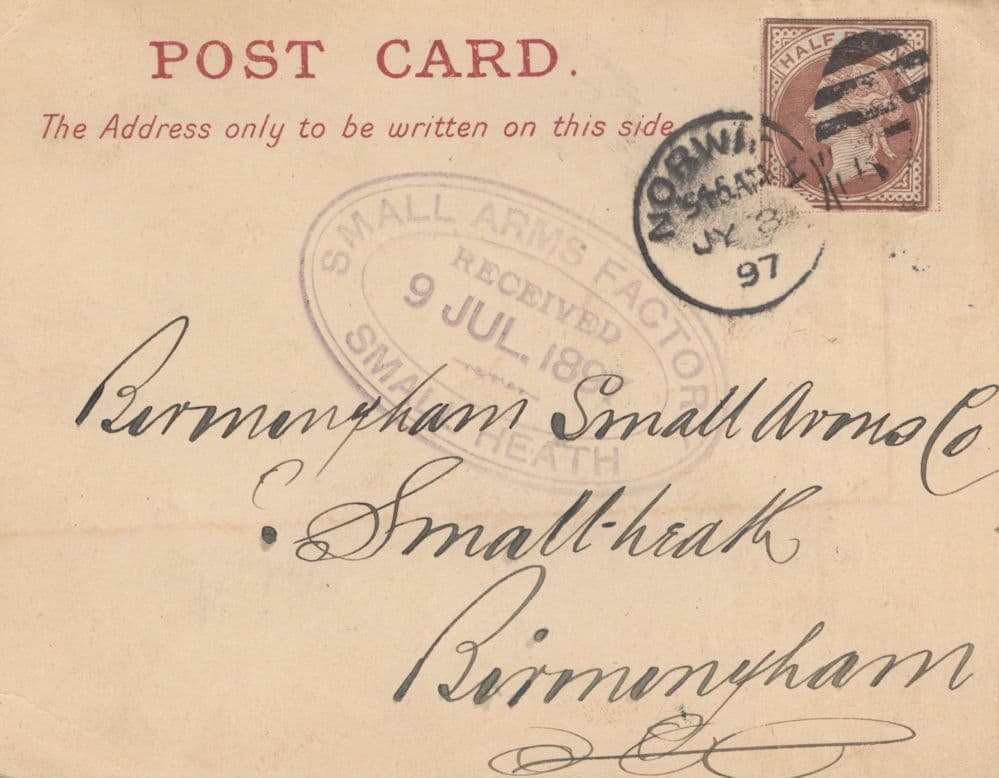 POST CARD.
The Address only to be written on this side
HALF
NORWI
545AM
JY 8
97
SMALL ARMS FACTORY
RECEIVED
9 JUL. 1897
SMALL HEATH
Birmingham Small Arms Co
Small-heath
Birmingham